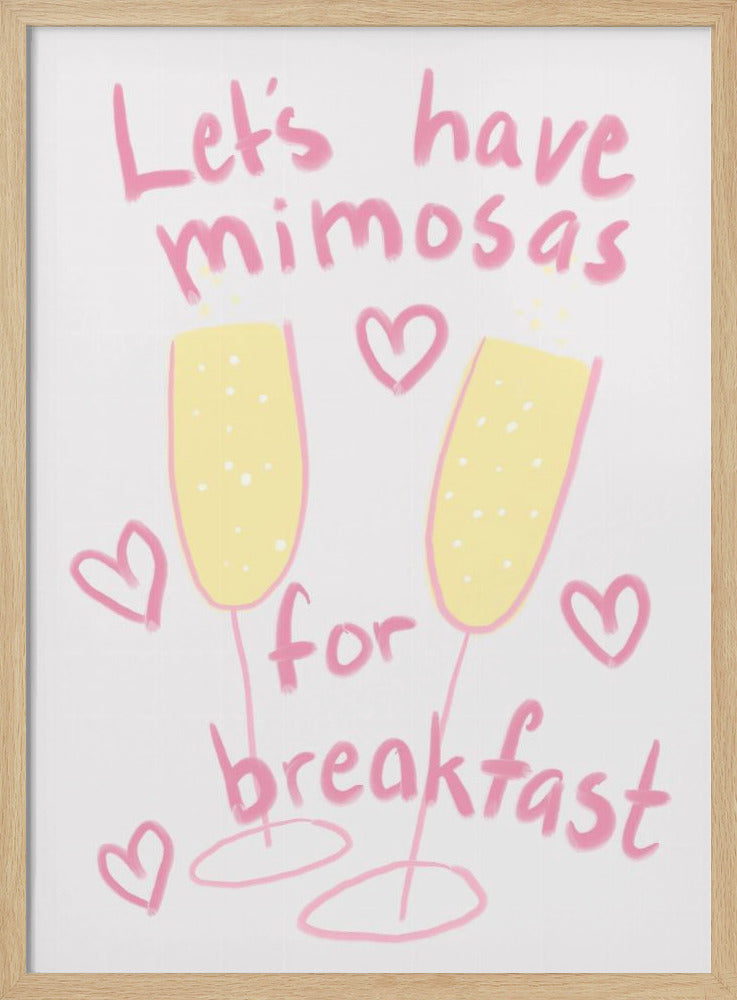 Let's have
mimosas
for
breakfast